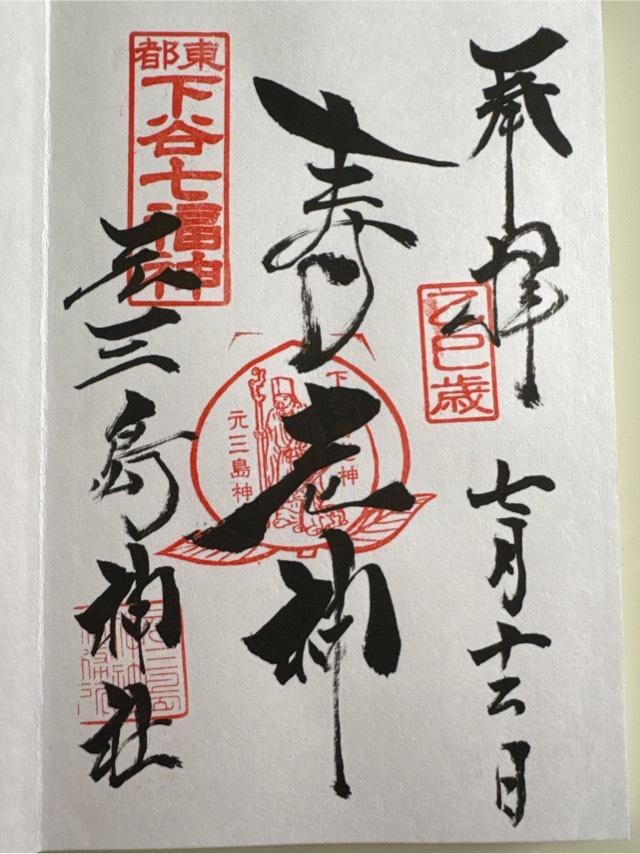 奉拝
乙巳歳
七月十二日
寿老神
元三島神
東都
下谷七福神
元三島神社